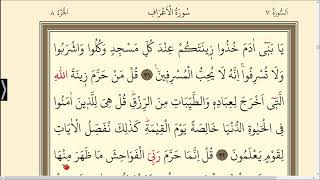 اَلسُّورَةُ ٧ سُورَةُ الْاَعْرَافِ اَلْجُزْءُ ٨
يَا بَنٖٓي اٰدَمَ خُذُوا زٖينَتَكُمْ عِنْدَ كُلِّ مَسْجِدٍ وَكُلُوا وَاشْرَبُوا
وَلَا تُسْرِفُوا اِنَّهُ لَا يُحِبُّ الْمُسْرِفٖينَ ﴿٣١﴾ قُلْ مَنْ حَرَّمَ زٖينَةَ اللّٰهِ
الَّتٖٓي اَخْرَجَ لِعِبَادِهٖ وَالطَّيِّبَاتِ مِنَ الرِّزْقِ قُلْ هِيَ لِلَّذٖينَ اٰمَنُوا
فِي الْحَيٰوةِ الدُّنْيَا خَالِصَةً يَوْمَ الْقِيٰمَةِ كَذٰلِكَ نُفَصِّلُ الْاٰيَاتِ
لِقَوْمٍ يَعْلَمُونَ ﴿٣٢﴾ قُلْ اِنَّمَا حَرَّمَ رَبِّيَ الْفَوَاحِشَ مَا ظَهَرَ مِنْهَا